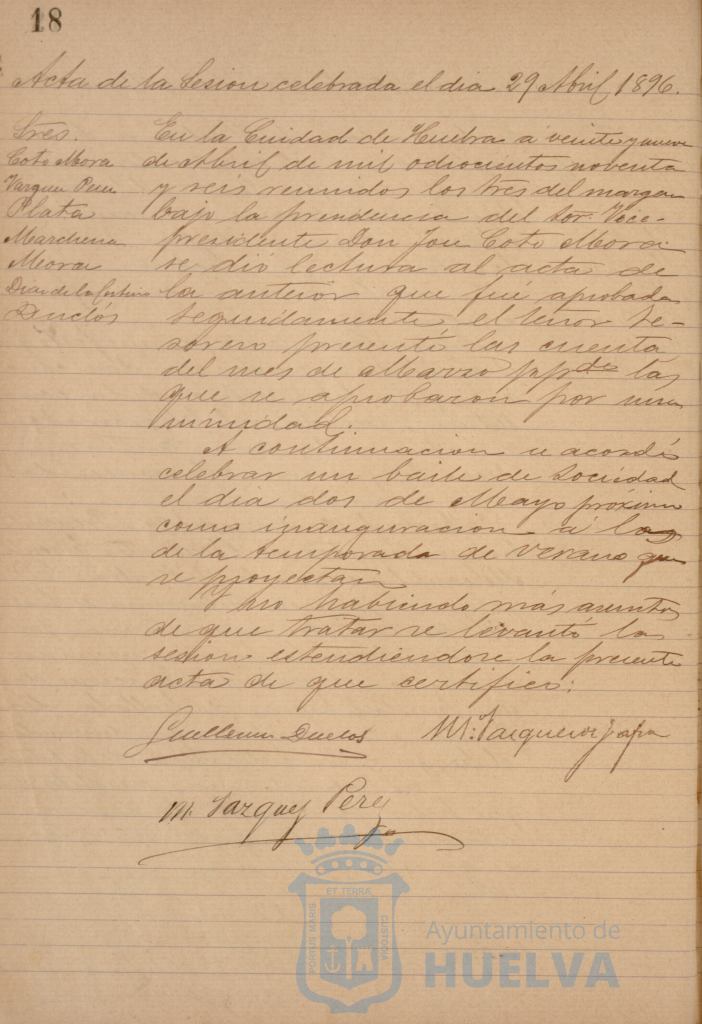 18
Acta de la Sesion celebrada el dia 29 Abril 1896.
Sres.
Coto Mora
Vazquez Perez
Plata
Marchena
Mora
Diaz de la Cortina
Duclós
En la Ciudad de Huelva a veinte y nueve
de Abril de mil ochocientos noventa
y seis reunidos los sres del margen
bajo la presidencia del Sor. Vice-
presidente Don José Coto Mora
se dió lectura al acta de
la anterior que fué aprobada
seguidamente el señor te-
sorero presentó las cuenta
del mes de Marzo ppdo las
que se aprobaron por una
nimidad.
A continuacion se acordó
celebrar un baile de Sociedad
el dia dos de Mayo próximo
como inauguracion á los
de la temporada de verano que
se proyectan
Y no habiendo más asuntos
de que tratar se levantó la
sesion estendiendose la presente
acta de que certifico:
Guillermo Duclos
M. Vazquez
M. Vazquez Perez
ET TERRÆ
PORTUS MARIS
CUSTODIA
Ayuntamiento de
HUELVA